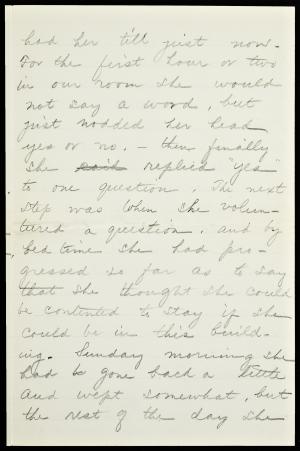 had her till just now.
For the first hour or two
in our room she would
not say a word, but
just nodded her head
yes or no. – then finally
she said replied "yes"
to one question. The next
step was when she volun-
teered a question, and by
bed time she had pro-
gressed so far as to say
that she thought she could
be contented to stay if she
could be in this build-
ing. Sunday morning she
had gone back a little
and wept somewhat, but
the rest of the day she